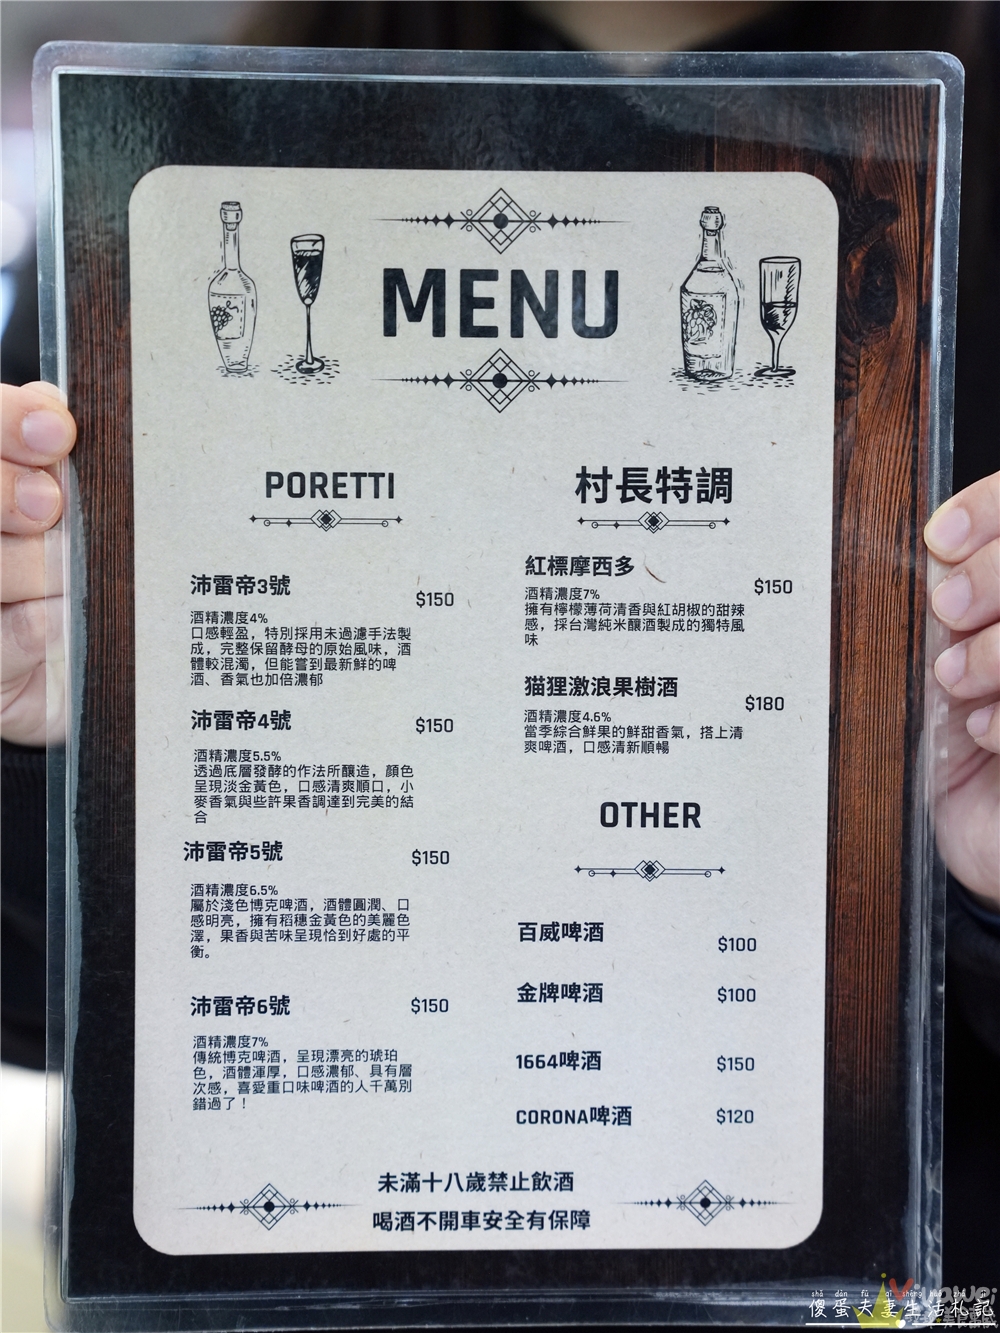 MENU
PORETTI
沛雷帝3號
$150
酒精濃度4%
口感輕盈，特別採用未過濾手法製
成，完整保留酵母的原始風味，酒
體較混濁，但能嘗到最新鮮的啤
酒、香氣也加倍濃郁
沛雷帝4號
$150
酒精濃度5.5%
透過底層發酵的作法所釀造，顏色
呈現淡金黃色，口感清爽順口，小
麥香氣與些許果香調達到完美的結
合
沛雷帝5號
$150
酒精濃度6.5%
屬於淺色博克啤酒，酒體圓潤、口
感明亮，擁有稻穗金黃色的美麗色
澤，果香與苦味呈現恰到好處的平
衡。
沛雷帝6號
$150
酒精濃度7%
傳統博克啤酒，呈現漂亮的琥珀
色，酒體渾厚，口感濃郁、具有層
次感，喜愛重口味啤酒的人千萬別
錯過了！
村長特調
紅標摩西多
$150
酒精濃度7%
擁有檸檬薄荷清香與紅胡椒的甜辣
感，採台灣純米釀酒製成的獨特風
味
猫狸激浪果樹酒
$180
酒精濃度4.6%
當季綜合鮮果的鮮甜香氣，搭上清
爽啤酒，口感清新順暢
OTHER
百威啤酒
$100
金牌啤酒
$100
1664啤酒
$150
CORONA啤酒
$120
未滿十八歲禁止飲酒
喝酒不開車安全有保障
shǎ dàn fū qī shēng huó zhá jì
傻蛋夫妻生活札記